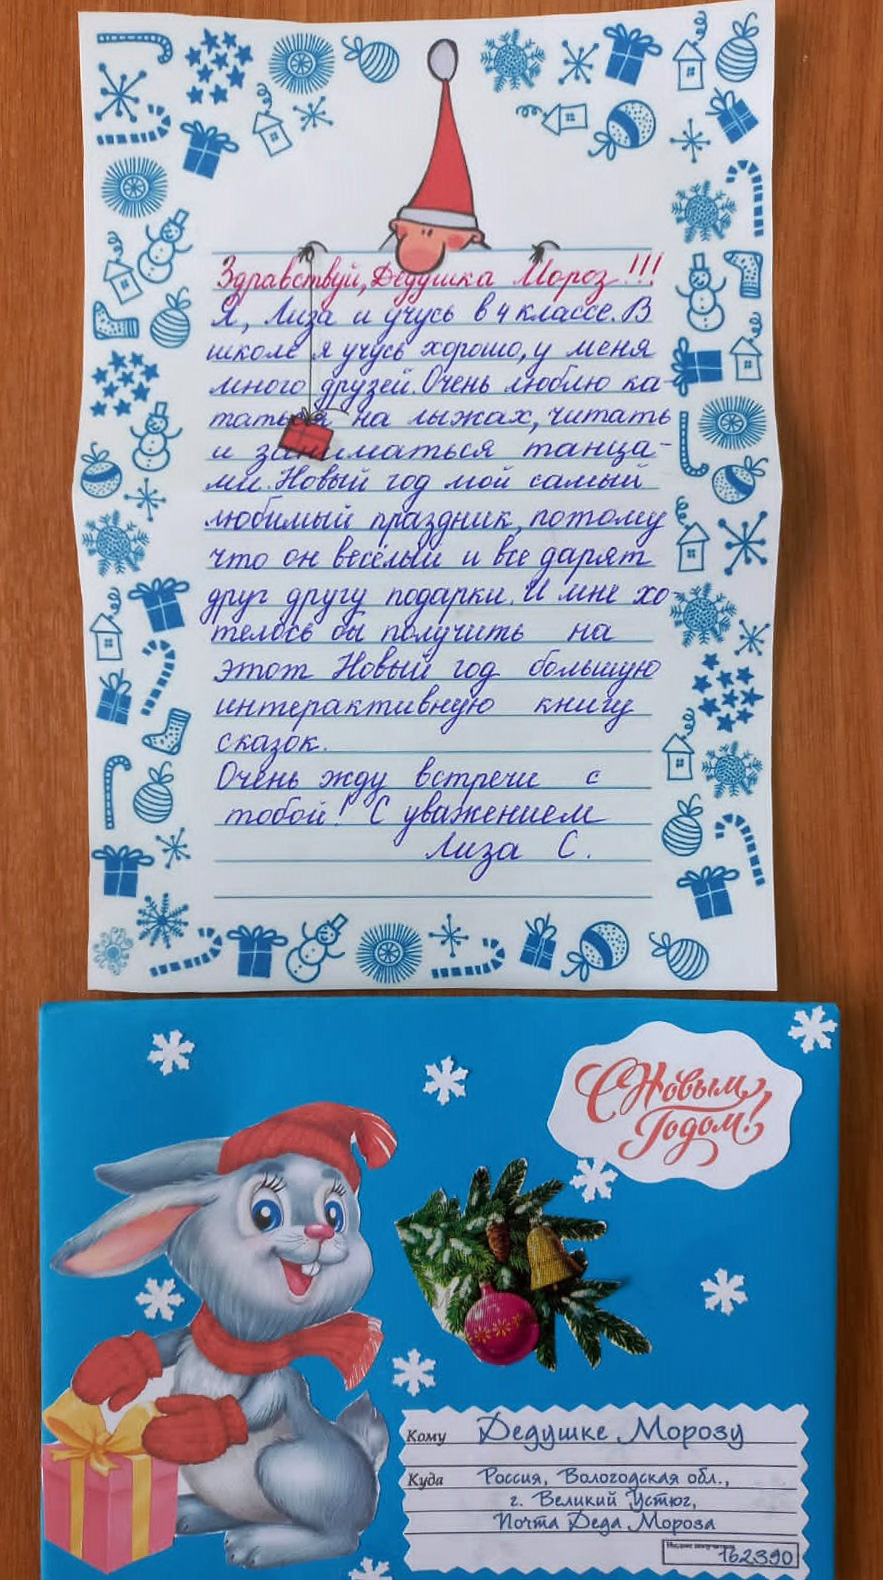 Здравствуй, Дедушка Мороз!!!
Я, Лиза и учусь в 4 классе. В
школе я учусь хорошо, у меня
много друзей. Очень люблю ка-
таться на лыжах, читать
и заниматься танца-
ми. Новый год мой самый
любимый праздник, потому
что он весёлый и все дарят
друг другу подарки. И мне хо
телось бы получить на
этот Новый год большую
интерактивную книгу
сказок.
Очень жду встречи с
тобой! С уважением
Лиза С.
С Новым
Годом!
Кому Дедушке Морозу
Куда Россия, Вологодская обл.,
г. Великий Устюг,
Почта Деда Мороза
Индекс получателя
162390